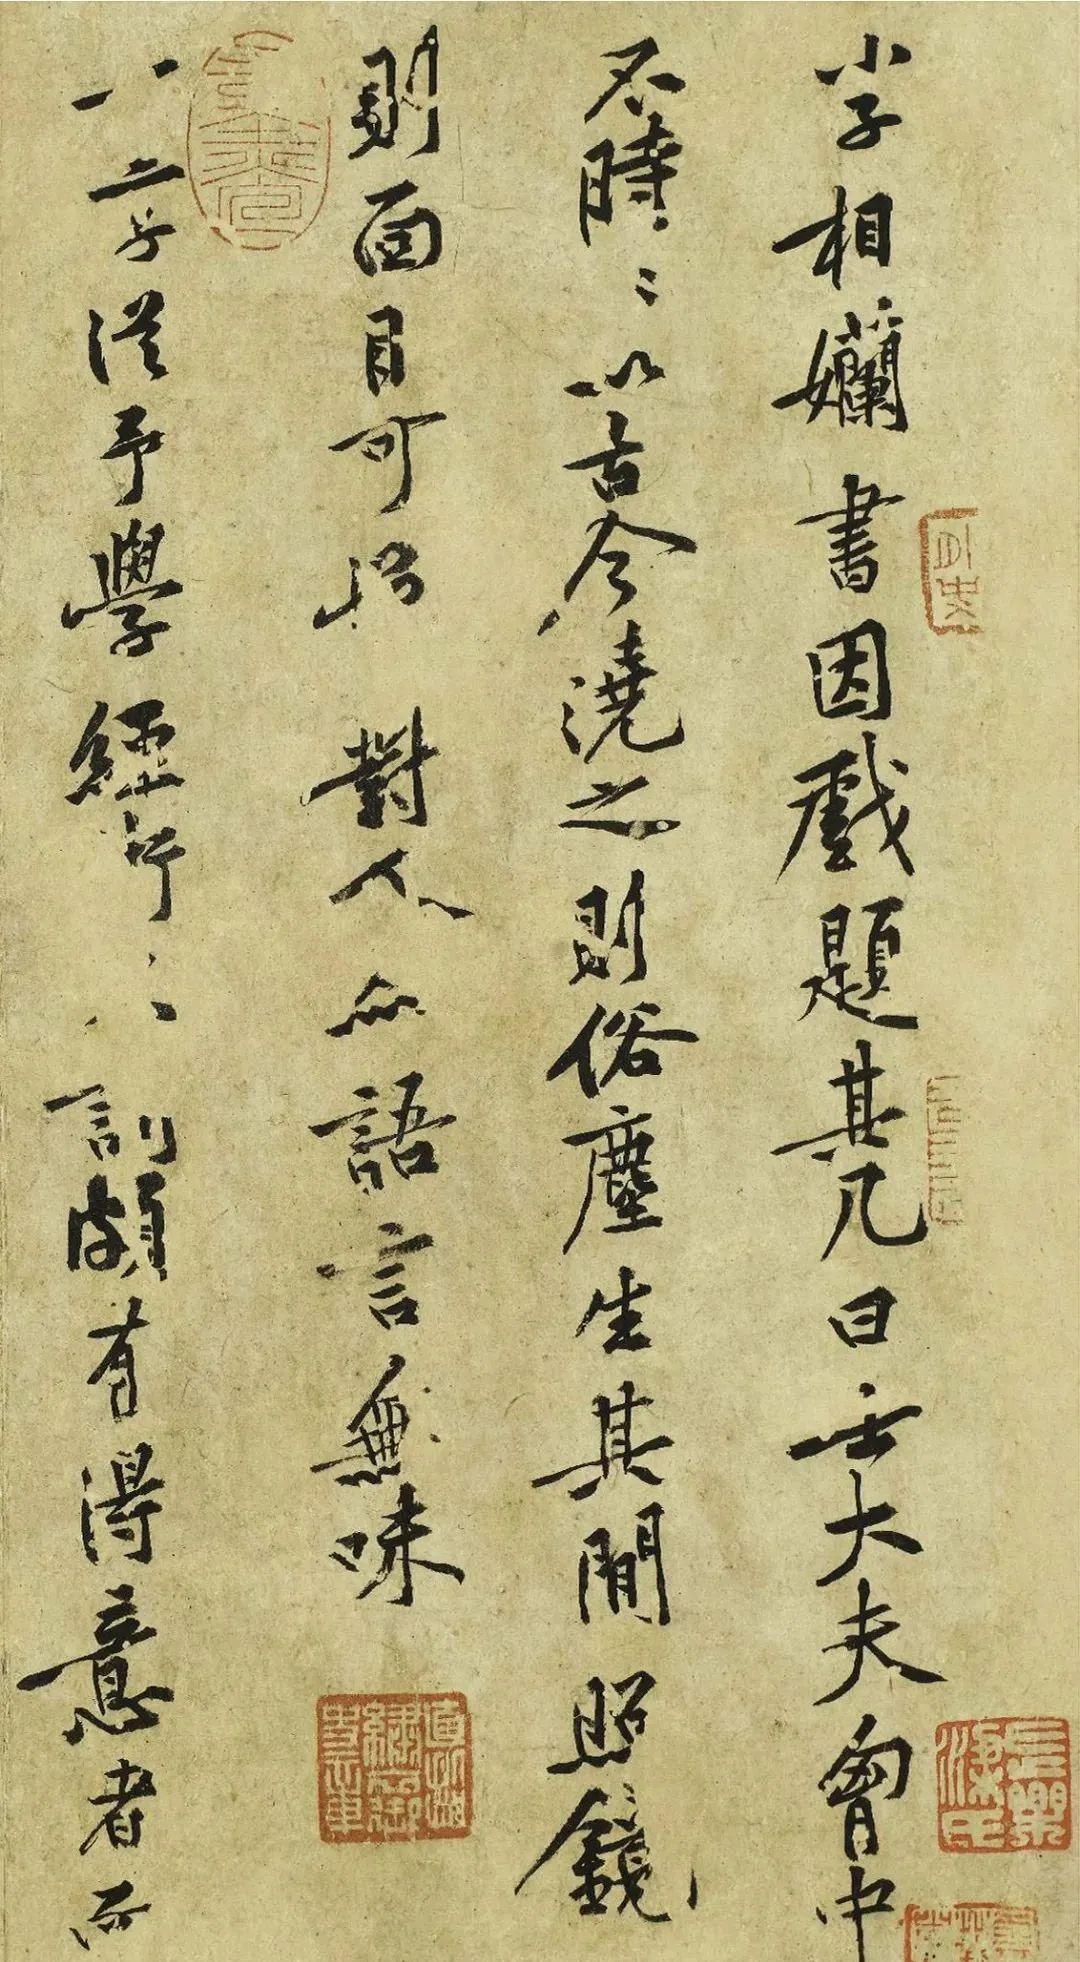 小子相嬾書因戲題其几曰士大夫胷中
不時〻以古今澆之則俗塵生其間照鏡
則面目可憎對人亦語言無味
一二子從予學經行之訓頗有得意者而